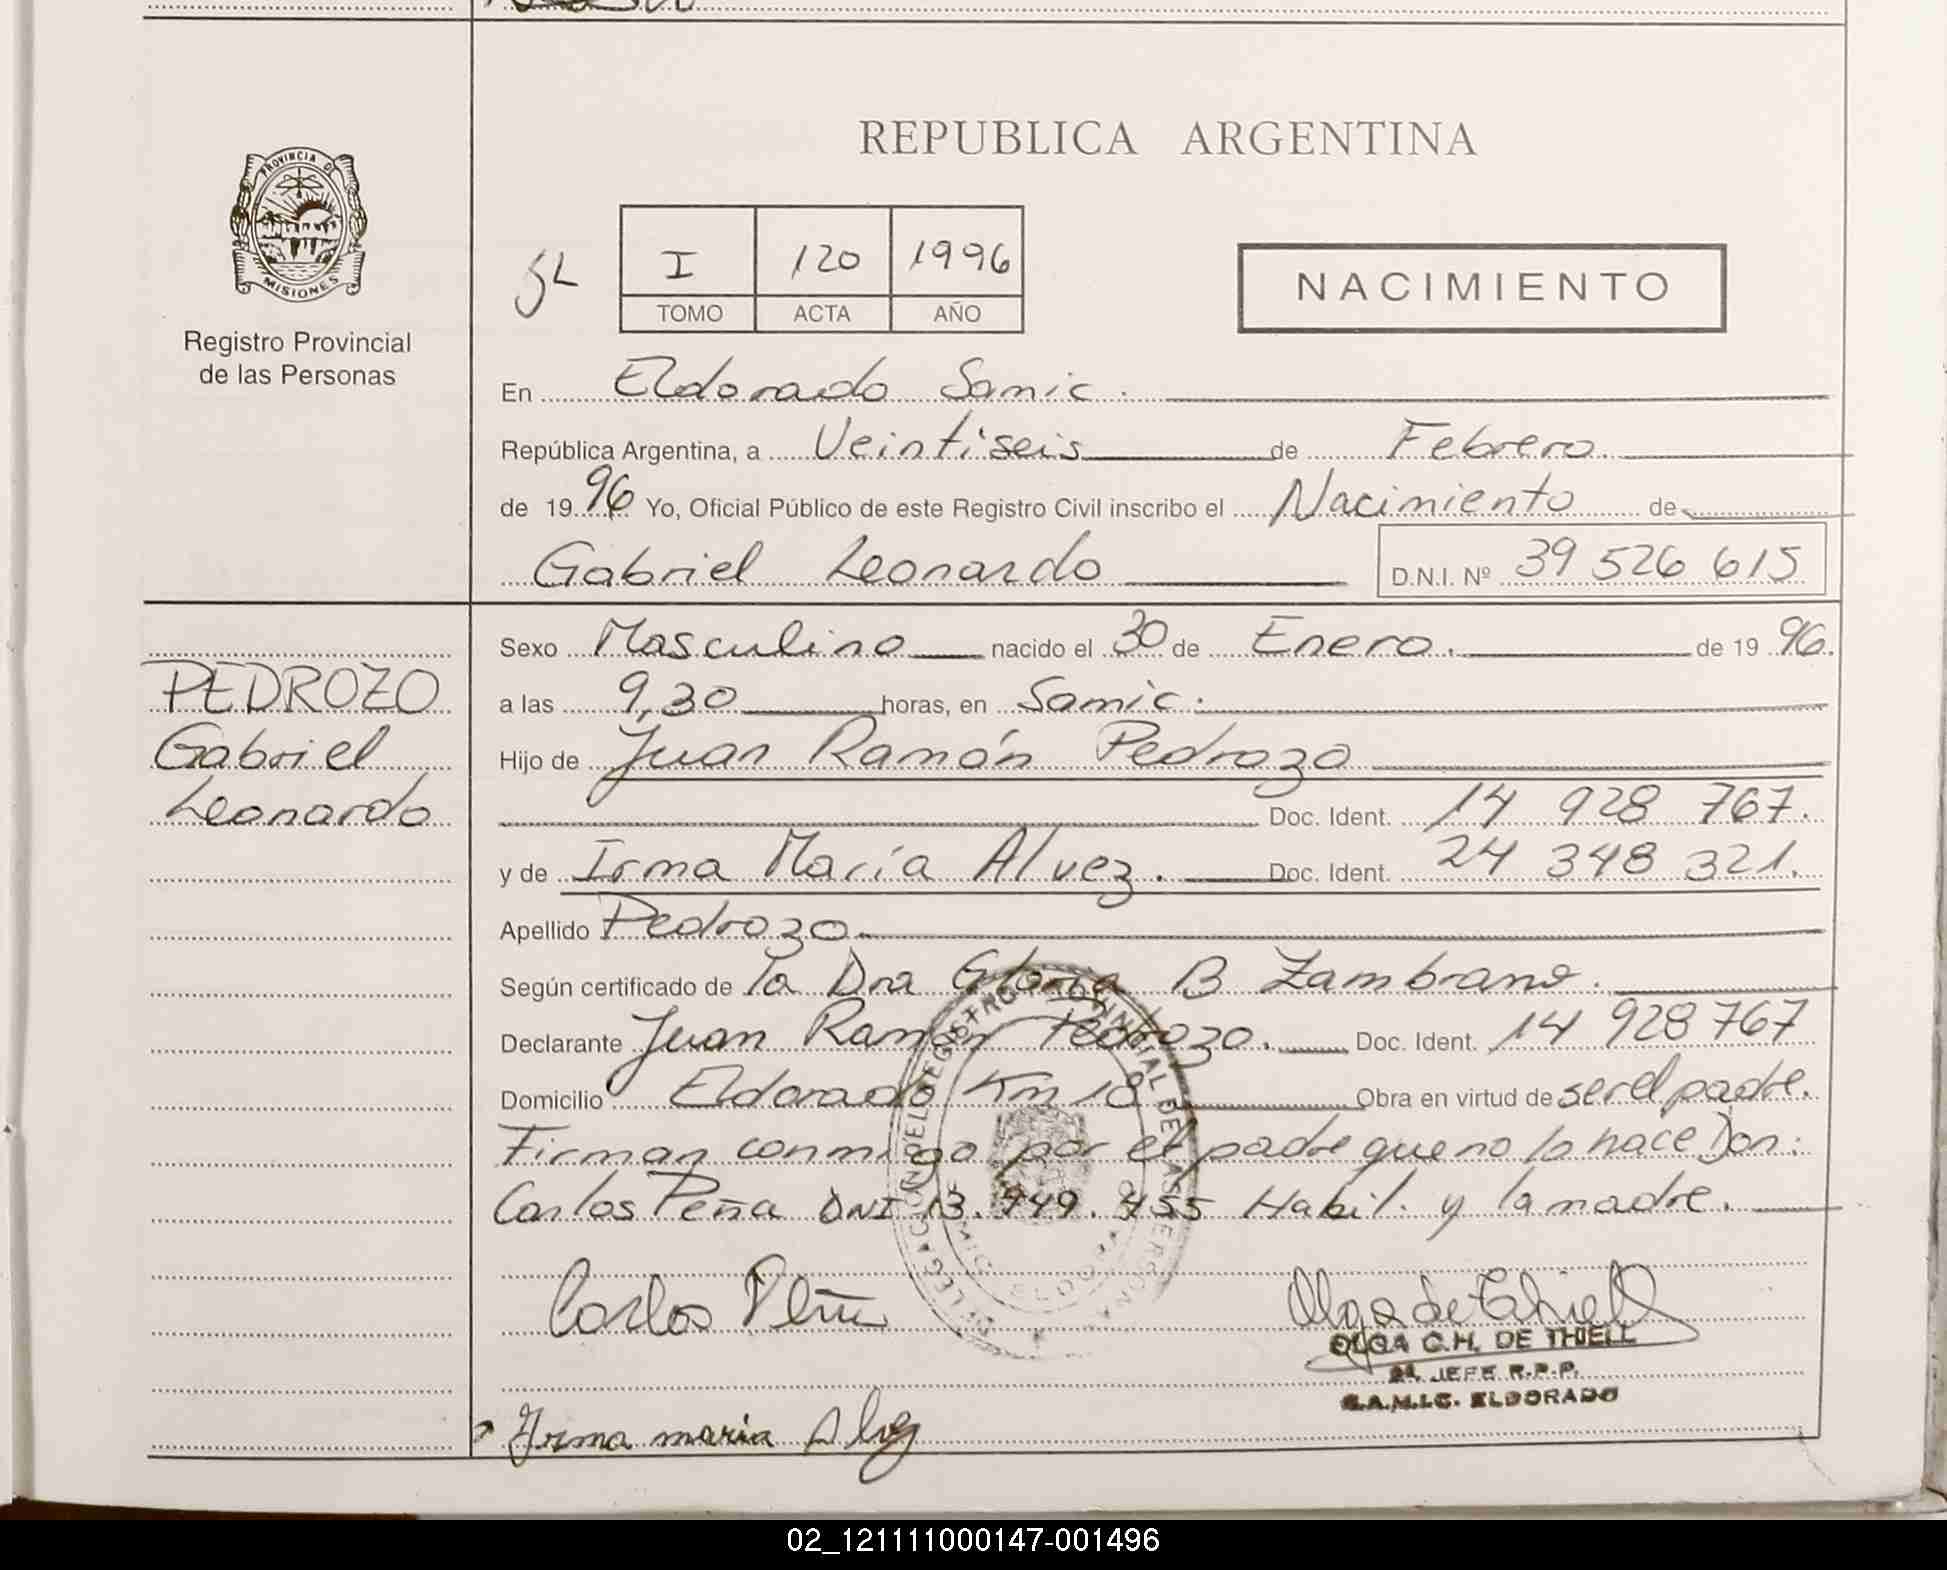 REPUBLICA ARGENTINA
PROVINCIA DE
MISIONES
Registro Provincial
de las Personas
I 120 1996
TOMO ACTA AÑO
NACIMIENTO
En Eldorado Samic.
República Argentina, a Veintiseis de Febrero
de 1996 Yo, Oficial Público de este Registro Civil inscribo el Nacimiento de
Gabriel Leonardo D.N.I. Nº 39 526 615
PEDROZO
Gabriel
Leonardo
Sexo Masculino nacido el 30 de Enero. de 1996.
a las 9,30 horas, en Samic.
Hijo de Juan Ramón Pedrozo
Doc. Ident. 14 928 767.
y de Irma María Alvez. Doc. Ident. 24 348 321.
Apellido Pedrozo.
Según certificado de la Dra Gloria B Zambrano.
Declarante Juan Ramón Pedrozo. Doc. Ident. 14 928 767
Domicilio Eldorado Km 18 Obra en virtud de ser el padre.
Firman conmigo por el padre que no lo hace Don:
Carlos Peña DNI 13.949.455 Habil. y la madre.
DELEGACION DEL REGISTRO PROVINCIAL DE LAS PERSONAS
Carlos Peña
Olga de Thiell
OLGA C.H. DE THIELL
JEFE R.P.P.
S.A.M.I.C. ELDORADO
Irma maria Alvez
02_121111000147-001496